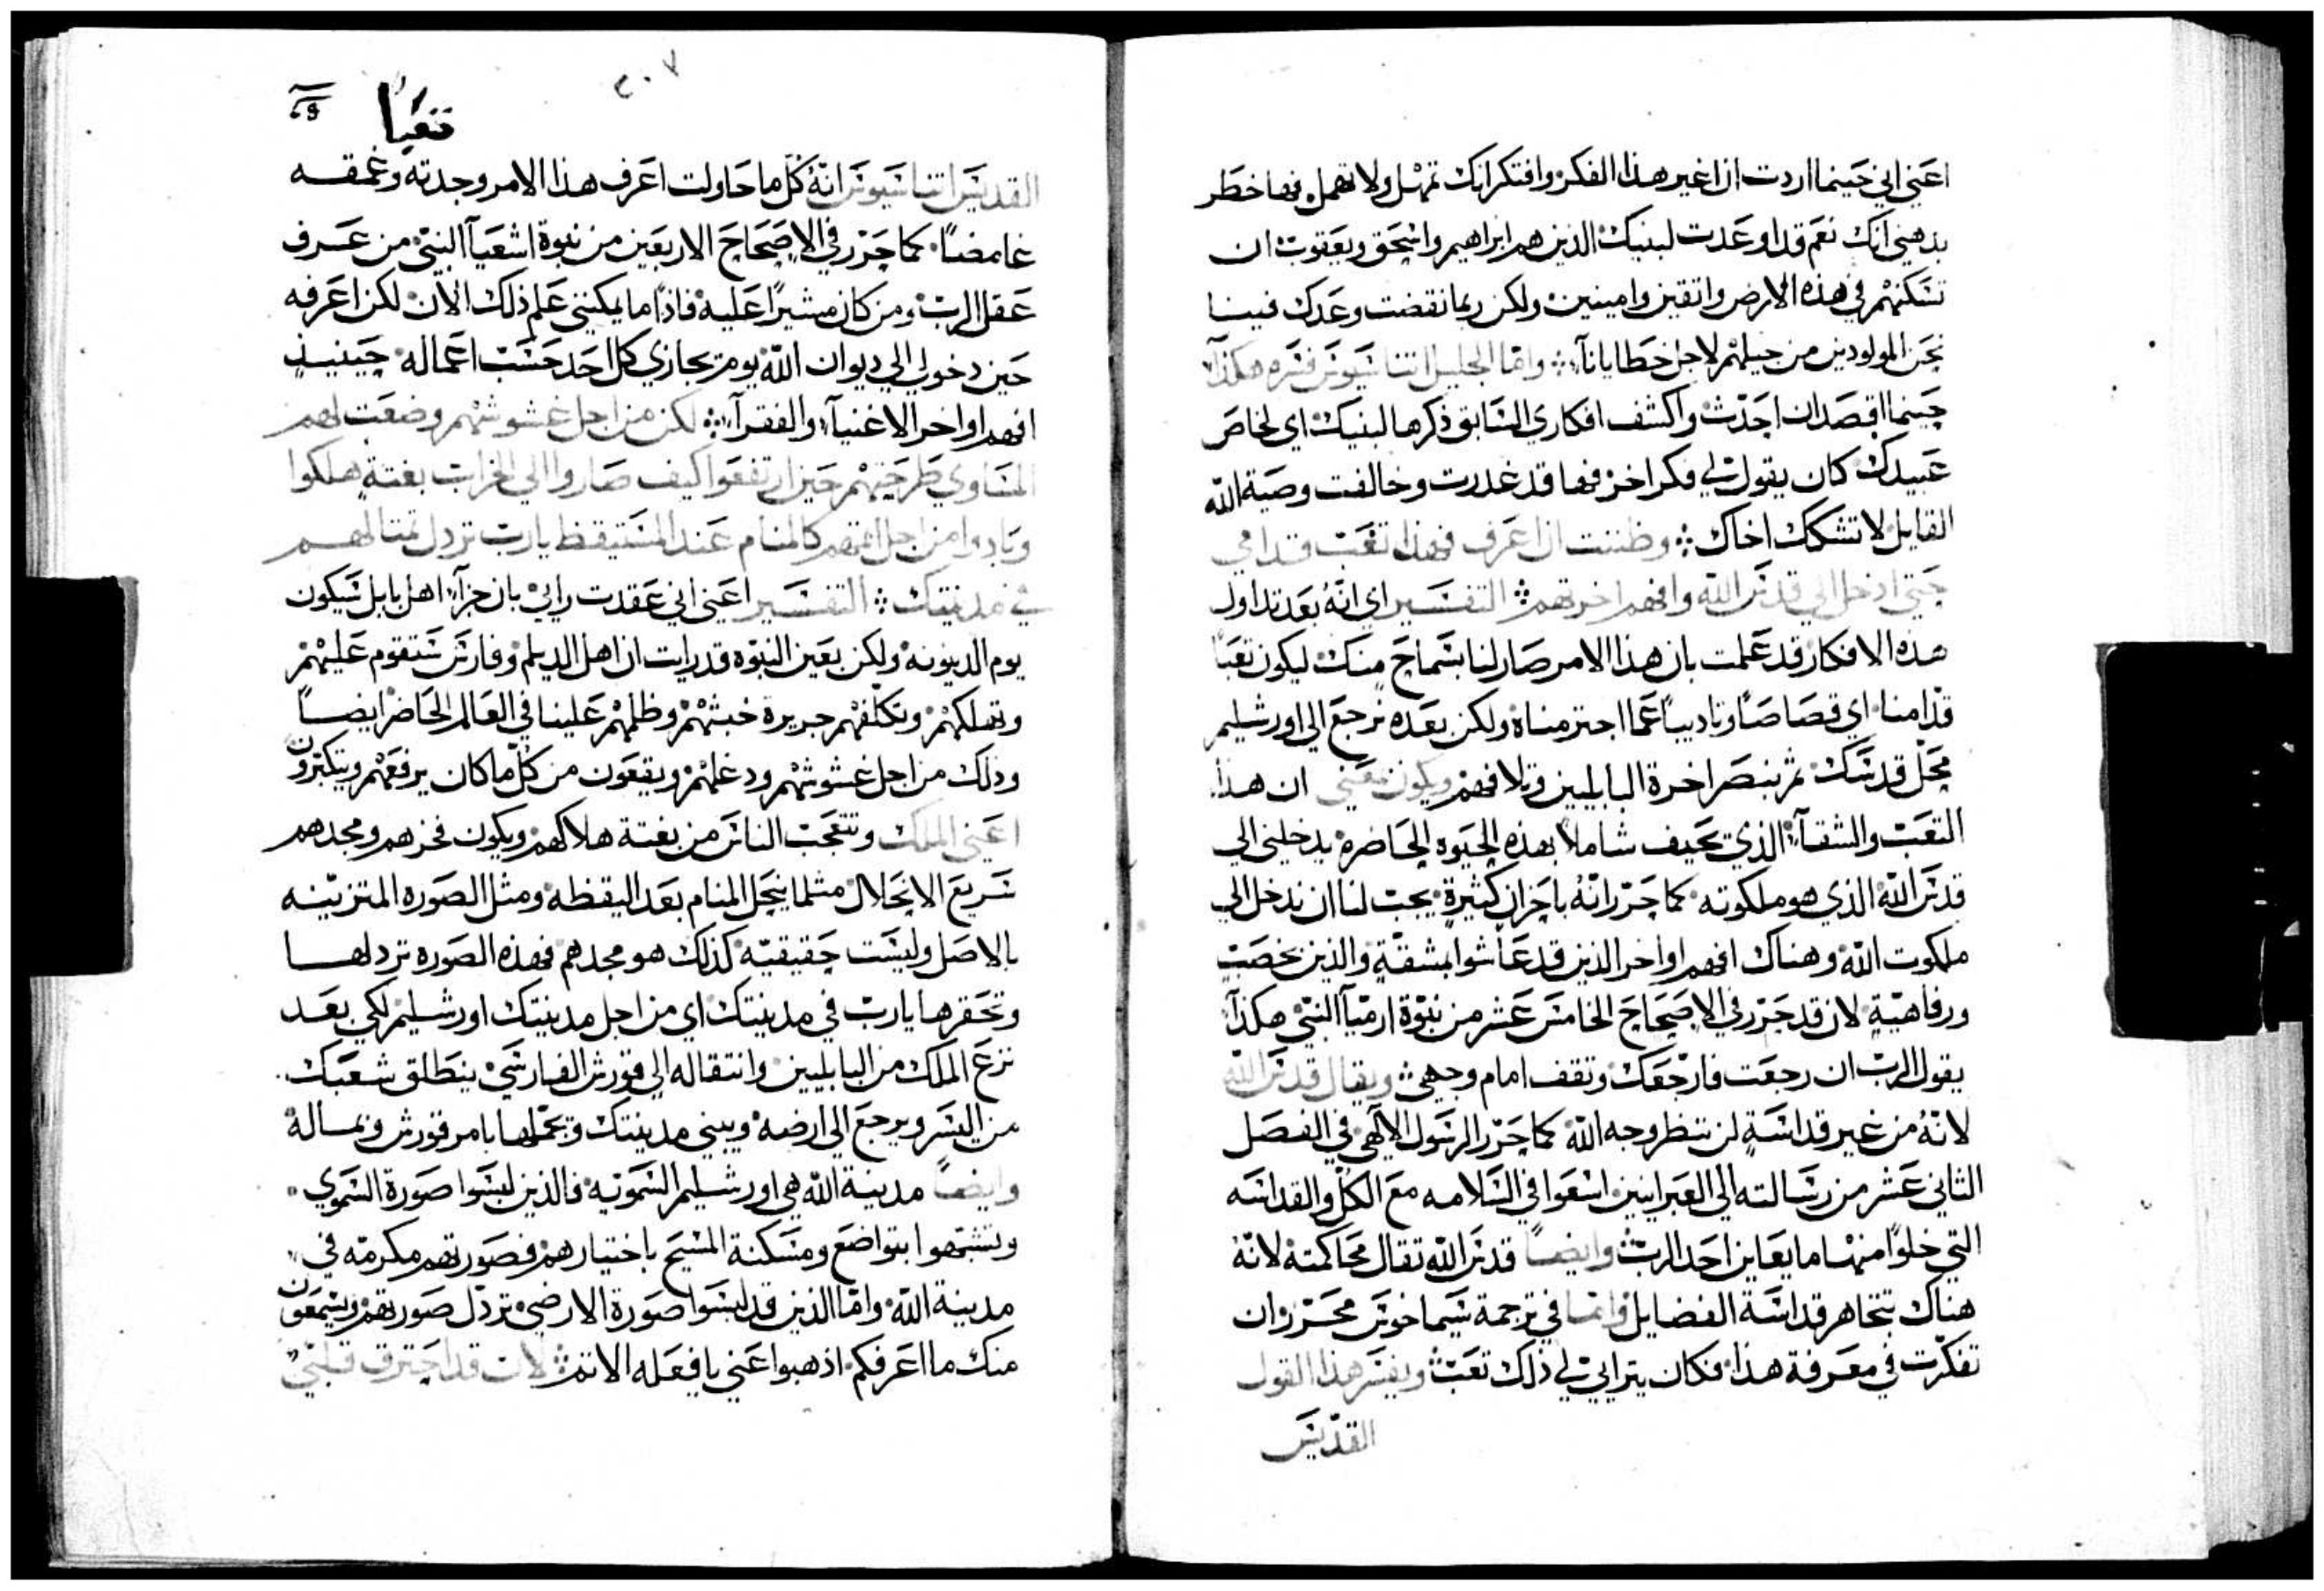 اعني اني حينما اردت ان اغير هذا الفكر وافتكر انك تمهل ولا تهمل فها خطر
بذهني انك نعم قد اوعدت لبنيك الذين هم ابراهيم واسحق ويعقوب ان
تسكنهم في هذه الارض واثقين وامينين ولكن ربما نقضت وعدك فينا
نحن المولودين من جيلهم لاجل خطايانا واما الجليل اثناسيوس فسره هكذا
حينما اقصد ان احدث واكشف افكاري السابق ذكرها لبنيك اي لخاص
عبيدك كان يقول لي فكر اخر فها قد غدرت وخالفت وصية الله
القايل لا تشكك اخاك وظننت ان اعرف فهذا تعب قدامي
حتى ادخل الي قدس الله وافهم اخرتهم التفسير اي انه بعد تداول
هذه الافكار قد علمت بان هذا الامر صار لنا بسماح منك ليكون تعبا
قدامنا اي قصاصا وتاديبا عما اجترمناه ولكن بعده نرجع الي اورشليم
محل قدسك ثم ننصر اخرة البابليين وتلافهم ويكون معني ان هذا
التعب والشقآ الذي تحيف شاملا بهذه الحيوه الحاضره يدخلني الي
قدس الله الذي هو ملكوته كما حرر انه باحزان كثيرة يجب لنا ان ندخل الي
ملكوت الله وهناك افهم اواخر الذين قد عاشوا بمشقة والذين بخصب
ورفاهية لان قد حرر في الاصحاح الخامس عشر من نبوة ارميآ النبي هكذا
يقول الرب ان رجعت فارجعك وتقف امام وجهي ويقال قدس الله
لانه من غير قداسة لن تنظر وجه الله كما حرر الرسول الالهي في الفصل
الثاني عشر من رسالته الي العبرانيين اسعوا في السلامه مع الكل والقداسه
التي خلوا منها ما يعاين احد الرب وايضا قدس الله تقال محاكمته لانه
هناك تتجاهر قداسة الفضايل واما في ترجمة سيماخوس محرر ان
تفكرت في معرفة هذا فكان يترايي لي ذلك تعب ويفسر هذا القول
القديس
٢٠٧
تعبا
القديس اثناسيوس انه كل ما حاولت اعرف هذا الامر وجدته وعمقه
غامضا كما حرر في الاصحاح الاربعين من نبوة اشعيآ النبي من عرف
عقل الرب ومن كان مشيرا عليه فاذا ما يمكنني علم ذلك الان لكن اعرفه
حين دخولي الي ديوان الله يوم تجازي كل احد حسب اعماله حينيذ
افهم اواخر الاغنيآ والفقرآ لكن من اجل غشوشهم وضعت لهم
المساوي طرحتهم حين ارتفعوا كيف صاروا الي الخراب بغتة هلكوا
وبادوا من اجل اثمهم كالمنام عند المستيقظ يارب تردل تمثالهم
في مدينتك التفسير اعني اني عقدت رايي بان جزآ اهل بابل سيكون
يوم الدينونه ولكن بعين النبوه قد رايت ان اهل الديلم وفارس ستقوم عليهم
وتهلكهم وتكلفهم جريرة خبثهم وظلمهم علينا في العالم الحاضر ايضا
وذلك من اجل غشوشهم ودغلهم ويقعون من كل ما كان يرفعهم ويتكبرون
اعني الملك وتتعجب الناس من بغتة هلاكهم ويكون فخرهم ومجدهم
سريع الانحلال مثلما ينحل المنام بعد اليقظه ومثل الصوره المتزينه
بالاصل وليست حقيقيه كذلك هو مجدهم فهذه الصوره تردلها
وتحقرها يارب في مدينتك اي من اجل مدينتك اورشليم لكي بعد
نزع الملك من البابليين وانتقاله الي قورش الفارسي ينطلق شعبك
من اليسر ويرجع الي ارضه ويبني مدينتك وتجملها بامر قورش وبماله
وايضا مدينة الله هي اورشليم السمويه فالذين لبسوا صورة السموي
وتشبهوا بتواضع ومسكنة المسيح باختيارهم فصورتهم مكرمه في
مدينة الله واما الذين قد لبسوا صورة الارضي تردل صورتهم ويسمعون
منك ما اعرفكم اذهبوا عني يا فعله الاثم لان قد احترق قلبي